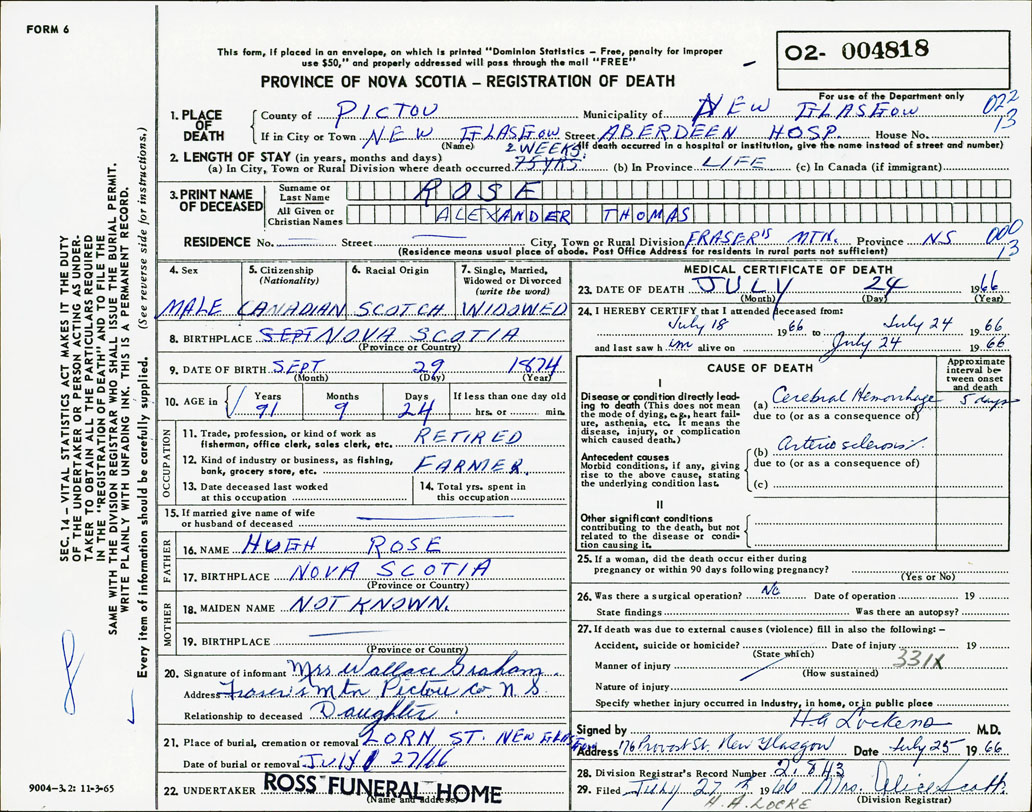 FORM 6
This form, if placed in an envelope, on which is printed "Dominion Statistics – Free, penalty for improper
use $50," and properly addressed will pass through the mail "FREE"
O2- 004818
PROVINCE OF NOVA SCOTIA – REGISTRATION OF DEATH
For use of the Department only
1. PLACE OF DEATH
County of PICTOU Municipality of NEW GLASGOW 022
If in City or Town NEW GLASGOW Street ABERDEEN HOSP House No. 13
(Name) (If death occurred in a hospital or institution, give the name instead of street and number)
2. LENGTH OF STAY (in years, months and days) 2 WEEKS.
(a) In City, Town or Rural Division where death occurred 75 YRS. (b) In Province LIFE (c) In Canada (if immigrant)
3. PRINT NAME OF DECEASED
Surname or Last Name ROSE
All Given or Christian Names ALEXANDER THOMAS
RESIDENCE No. — Street — City, Town or Rural Division FRASER'S MTN. Province N.S 000
(Residence means usual place of abode. Post Office Address for residents in rural parts not sufficient) 13
4. Sex 5. Citizenship (Nationality) 6. Racial Origin 7. Single, Married, Widowed or Divorced (write the word)
MALE CANADIAN SCOTCH WIDOWED
8. BIRTHPLACE SEPT NOVA SCOTIA
(Province or Country)
9. DATE OF BIRTH SEPT 29 1874
(Month) (Day) (Year)
10. AGE in Years Months Days If less than one day old
91 9 24 hrs. or min.
OCCUPATION
11. Trade, profession, or kind of work as
fisherman, office clerk, sales clerk, etc. RETIRED
12. Kind of industry or business, as fishing,
bank, grocery store, etc. FARMER.
13. Date deceased last worked
at this occupation
14. Total yrs. spent in
this occupation
15. If married give name of wife
or husband of deceased —
FATHER
16. NAME HUGH ROSE
17. BIRTHPLACE NOVA SCOTIA
(Province or Country)
MOTHER
18. MAIDEN NAME NOT KNOWN.
19. BIRTHPLACE —
(Province or Country)
20. Signature of informant Mrs Wallace Graham.
Address Fraser's Mtn Pictou Co N.S.
Relationship to deceased Daughter.
21. Place of burial, cremation or removal LORN ST. NEW GLASGOW
Date of burial or removal JULY 27/66
22. UNDERTAKER ROSS FUNERAL HOME
(Name and address)
MEDICAL CERTIFICATE OF DEATH
23. DATE OF DEATH JULY 24 1966
(Month) (Day) (Year)
24. I HEREBY CERTIFY that I attended deceased from:
July 18 1966 to July 24 1966
and last saw him alive on July 24 1966
CAUSE OF DEATH
Approximate interval between onset and death
I
Disease or condition directly lead-
ing to death (This does not mean
the mode of dying, e.g., heart fail-
ure, asthenia, etc. It means the
disease, injury, or complication
which caused death.)
(a) Cerebral Hemorrhage 5 days
due to (or as a consequence of)
Antecedent causes
Morbid conditions, if any, giving
rise to the above cause, stating
the underlying condition last.
(b) Arteriosclerosis
due to (or as a consequence of)
(c)
II
Other significant conditions
contributing to the death, but not
related to the disease or condi-
tion causing it.
25. If a woman, did the death occur either during
pregnancy or within 90 days following pregnancy?
(Yes or No)
26. Was there a surgical operation? No Date of operation 19
State findings Was there an autopsy?
27. If death was due to external causes (violence) fill in also the following: –
Accident, suicide or homicide? Date of injury 19
(State which) 331X
Manner of injury
(How sustained)
Nature of injury
Specify whether injury occurred in industry, in home, or in public place
Signed by M.D.
Address 176 Provost St. New Glasgow Date July 25 1966
28. Division Registrar's Record Number 2,843
29. Filed July 27th 1966 Mrs. Alice Scott
(Division Registrar)
H. A. LOCKE
9004-3.2: 11-3-65
SEC. 14 – VITAL STATISTICS ACT MAKES IT THE DUTY
OF THE UNDERTAKER OR PERSON ACTING AS UNDER-
TAKER TO OBTAIN ALL THE PARTICULARS REQUIRED
IN THE "REGISTRATION OF DEATH" AND TO FILE THE
SAME WITH THE DIVISION REGISTRAR WHO SHALL ISSUE THE BURIAL PERMIT.
WRITE PLAINLY WITH UNFADING INK. THIS IS A PERMANENT RECORD.
Every item of information should be carefully supplied. (See reverse side for instructions.)